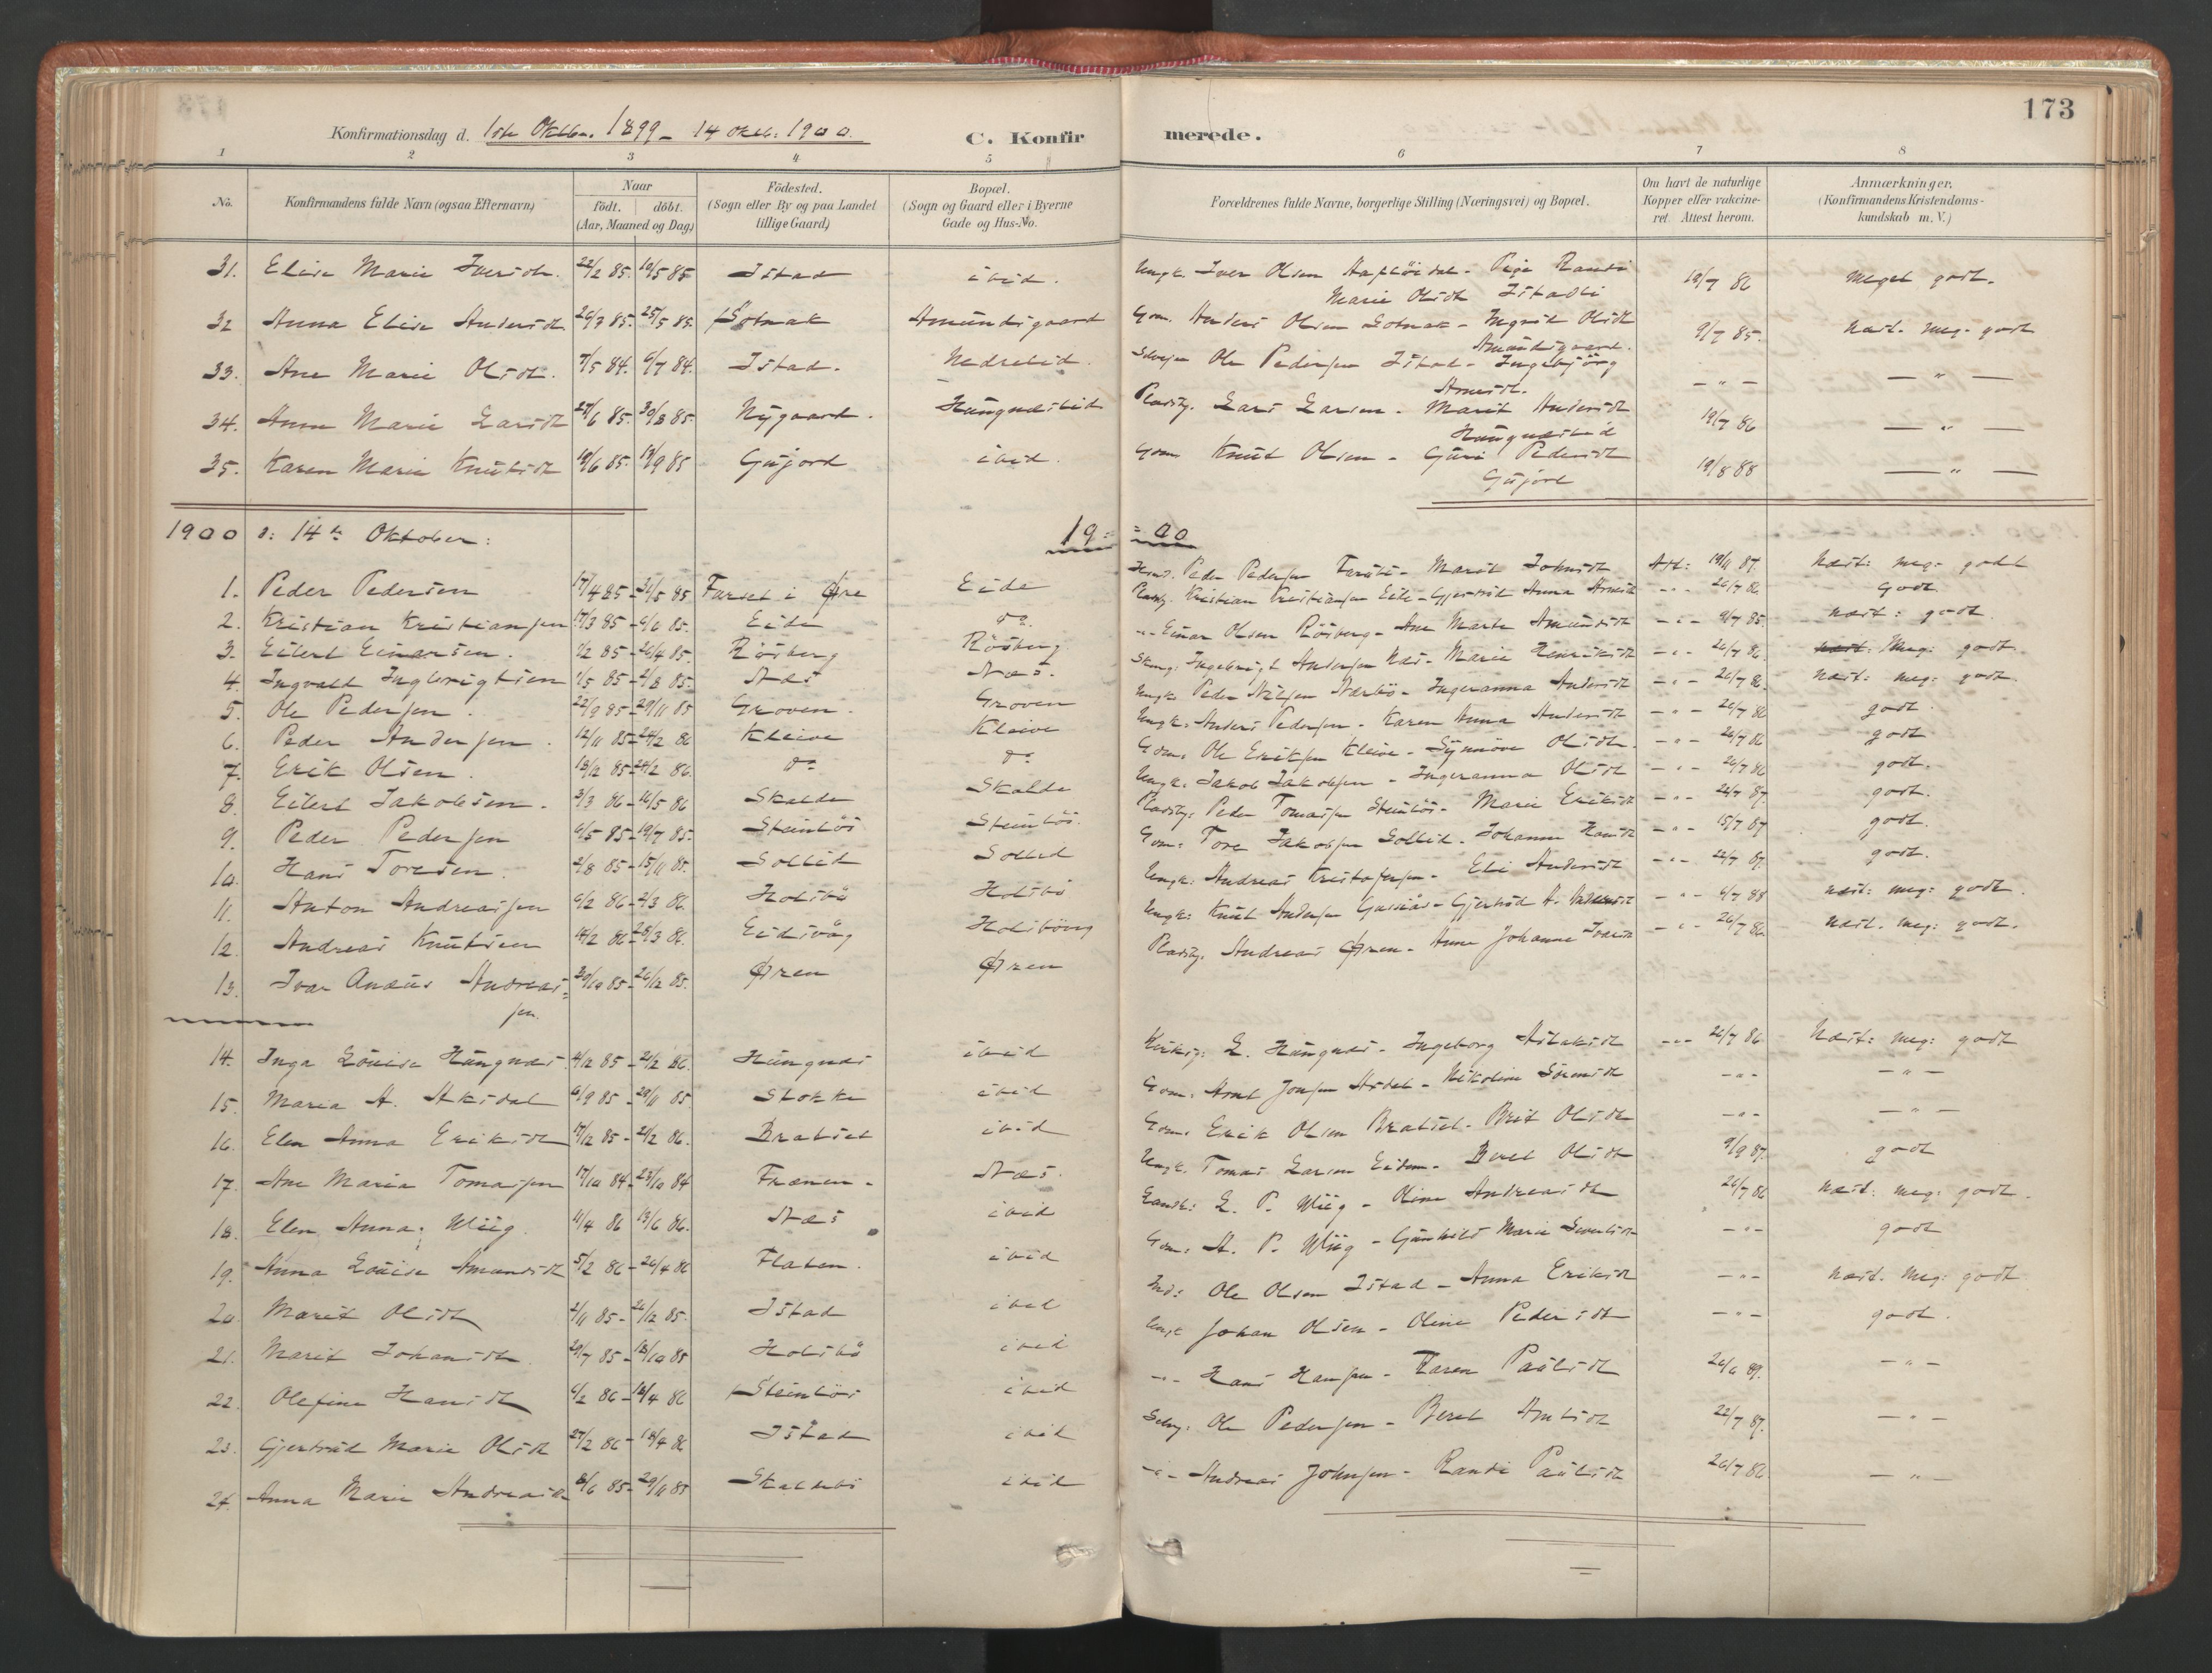 173
Konfirmationsdag d. 1ste Oktbr. 1899 - 14 Oktb: 1900.
C. Konfirmerede.
1 2 3 4 5 6 7 8
No.
Konfirmandens fulde Navn (ogsaa Efternavn)
Naar
født. døbt.
(Aar, Maaned og Dag)
Fødested.
(Sogn eller By og paa Landet
tillige Gaard)
Bopæl.
(Sogn og Gaard eller i Byerne
Gade og Hus-No.
Forældrenes fulde Navne, borgerlige Stilling (Næringsvei) og Bopæl.
Om havt de naturlige
Kopper eller vakcine-
ret. Attest herom.
Anmærkninger.
(Konfirmandens Kristendoms-
kundskab m. V.)
31. Elise Marie Iversdt. 22/2 85. 10/5 85 Istad ibid. Ungk. Iver Olsen - Pige Randi
Marie Olsdt Istadli 19/7 86 Meget godt.
32 Anna Elise Andersdt 26/3 85. 25/5 85. Solnak Amundsgaard Gm. Anders Olsen Solnak - Ingrid Olsdt
Amundsgaard. 9/7 85. Næst. meg. godt
33. Ane Marie Olsdt. 7/5 84. 6/7 84. Istad. Nedrelid. Selvejer Ole Pedersen Istad - Ingebjörg
Arnesdt. - " - - " -
34. Anne Marie Larsdt 27/6 85. 30/8 85. Nygaard. Haugnæslid Pladsm. Lars Larsen - Marit Andersdt
Haugnæslid 19/7 86 - " -
35. Karen Marie Knutsdt 19/6 85. 13/9 85 Gujord ibid. Gm. Knut Olsen - Guri Pedersdt
Gujord 19/8 88 - " -
1900 d: 14de Oktober: 19 = = 00
1. Peder Pedersen 17/4 85 - 31/5 85 Farset i Øre Eide Peder Pedersen - Marit Johnsdt Att: 19/11 87. Næst: meg: godt
2. Kristian Kristiansen 17/3 85 - 6/6 85. Eide do. Kristian Kristiansen Eide - Gjertrud Anna Arnesdt - " - 26/7 86 Godt.
3. Eilert Einarsen. 1/2 85 - 26/4 85. Rösberg Rösberg - " - Einar Olsen Rösberg - Ane Marte Amundsdt - " - 9/7 85. næst: godt
4. Ingvald Ingbrigtsen 1/5 85 - 2/8 85. Næs Næs. Ingebrigt Andersen Næs - Marie Henriksdt - " - 26/7 86. Meg: godt.
5. Ole Pedersen. 22/9 85 - 29/11 85 Groven. Groven Ungk. Peder - Ingeranna Andersdt - " - 26/7 86. Næst: meg: godt.
6. Peder Andersen. 12/11 85 - 24/2 86 Kleive Kleive Ungk. Anders Pedersen - Karen Anna Andersdt - " - 26/7 86 godt.
7. Erik Olsen. 13/12 85 - 24/2 86. do do Gm. Ole Eriksen Kleive - Synnöve Olsdt. - " - 26/7 86 godt
8. Eilert Jakobsen. 3/3 86 - 16/5 86 Skalde Skalde Ungk. Jakob Jakobsen - Ingeranna Olsdt - " - 26/7 86 godt.
9. Peder Pedersen 6/5 85 - 19/7 85. Steinlös Steinlös. Pladsm. Peder Tomassen Steinlös - Marie Eriksdt - " - 22/7 87. godt.
10. Hans Toresen. 2/8 85 - 15/11 85. Sollid Sollid Gm: Tore Jakobsen Sollid. Johanna Hansdt - " - 15/7 87 godt.
11. Anton Andreassen 6/2 86 - 2/3 86. Holsbö Holsbö Ungk. Andreas Kristofersen - Eli Andersdt - " - 22/7 87. godt.
12. Andreas Knutsen 14/2 86 - 28/3 86. Eidsvåg Holsböeng Ungk: Knut Andersen - Gjertrud A. Andersdt - " - 6/7 88 næst: meg: godt.
13. Ivar Anæus Andreas=
sen. 30/10 85 - 26/12 85. Øren Øren Pladsm. Andreas Øren - Anne Johanne Ivarsdt - " - 26/7 86. næst. meg: godt.
14. Inga Louise Haugnæs. 4/12 85 - 21/2 86. Haugnæs ibid Kirkes: L. Haugnæs - Ingeborg Aslaksdt - " - 26/7 86 Næst: meg: godt
15. Maria A. Aksdal 6/9 85 - 29/11 85. Stokke ibid Gm. Arnt Jonsen - Nikoline Sörensdt - " - - " -
16. Elen Anna Eriksdt 17/12 85 - 21/2 86. Bratset ibid Gm. Erik Olsen Bratset - Brit Olsdt - " - - " -
17. Ane Maria Tomassen 17/10 84 - 23/10 84 Frænen. Næs. Ungk. Tomas Larsen Eiden - Beret Olsdt 9/9 87. godt
18. Elen Anna Wiig. 11/4 86 13/6 86. Næs ibid Landh: L. P. Wiig - Oline Andreasdt 26/7 86 næst: meg: godt.
19. Anna Louise Amundsdt 5/2 86 - 26/4 86 Flaten. ibid Gm: A. P. Wiig - Gunhild Marie Sivertsdt - " - godt
20. Marit Olsdt 2/11 85 - 26/12 85. Istad ibid Ind: Ole Olsen Istad - Anna Eriksdt - " - næst. meg: godt
21. Marit Johansdt. 29/7 85 - 18/10 85 Holsbö ibid Ungk Johan Olsen - Oline Pedersdt - " - godt.
22. Olefine Hansdt 6/2 86 - 18/4 86 Steinlös ibid - " - Hans Hansen - Karen Paulsdt 26/6 89. - " -
23. Gjertrud Marie Olsdt 27/2 86 - 18/4 86 Istad ibid Selvej: Ole Pedersen - Beret Antsdt 22/7 87. - " -
24. Anna Marie Andreasdt 8/6 85 - 29/11 85 ibid - " - Andreas Johnsen - Randi Paulsdt 26/7 86. - " -